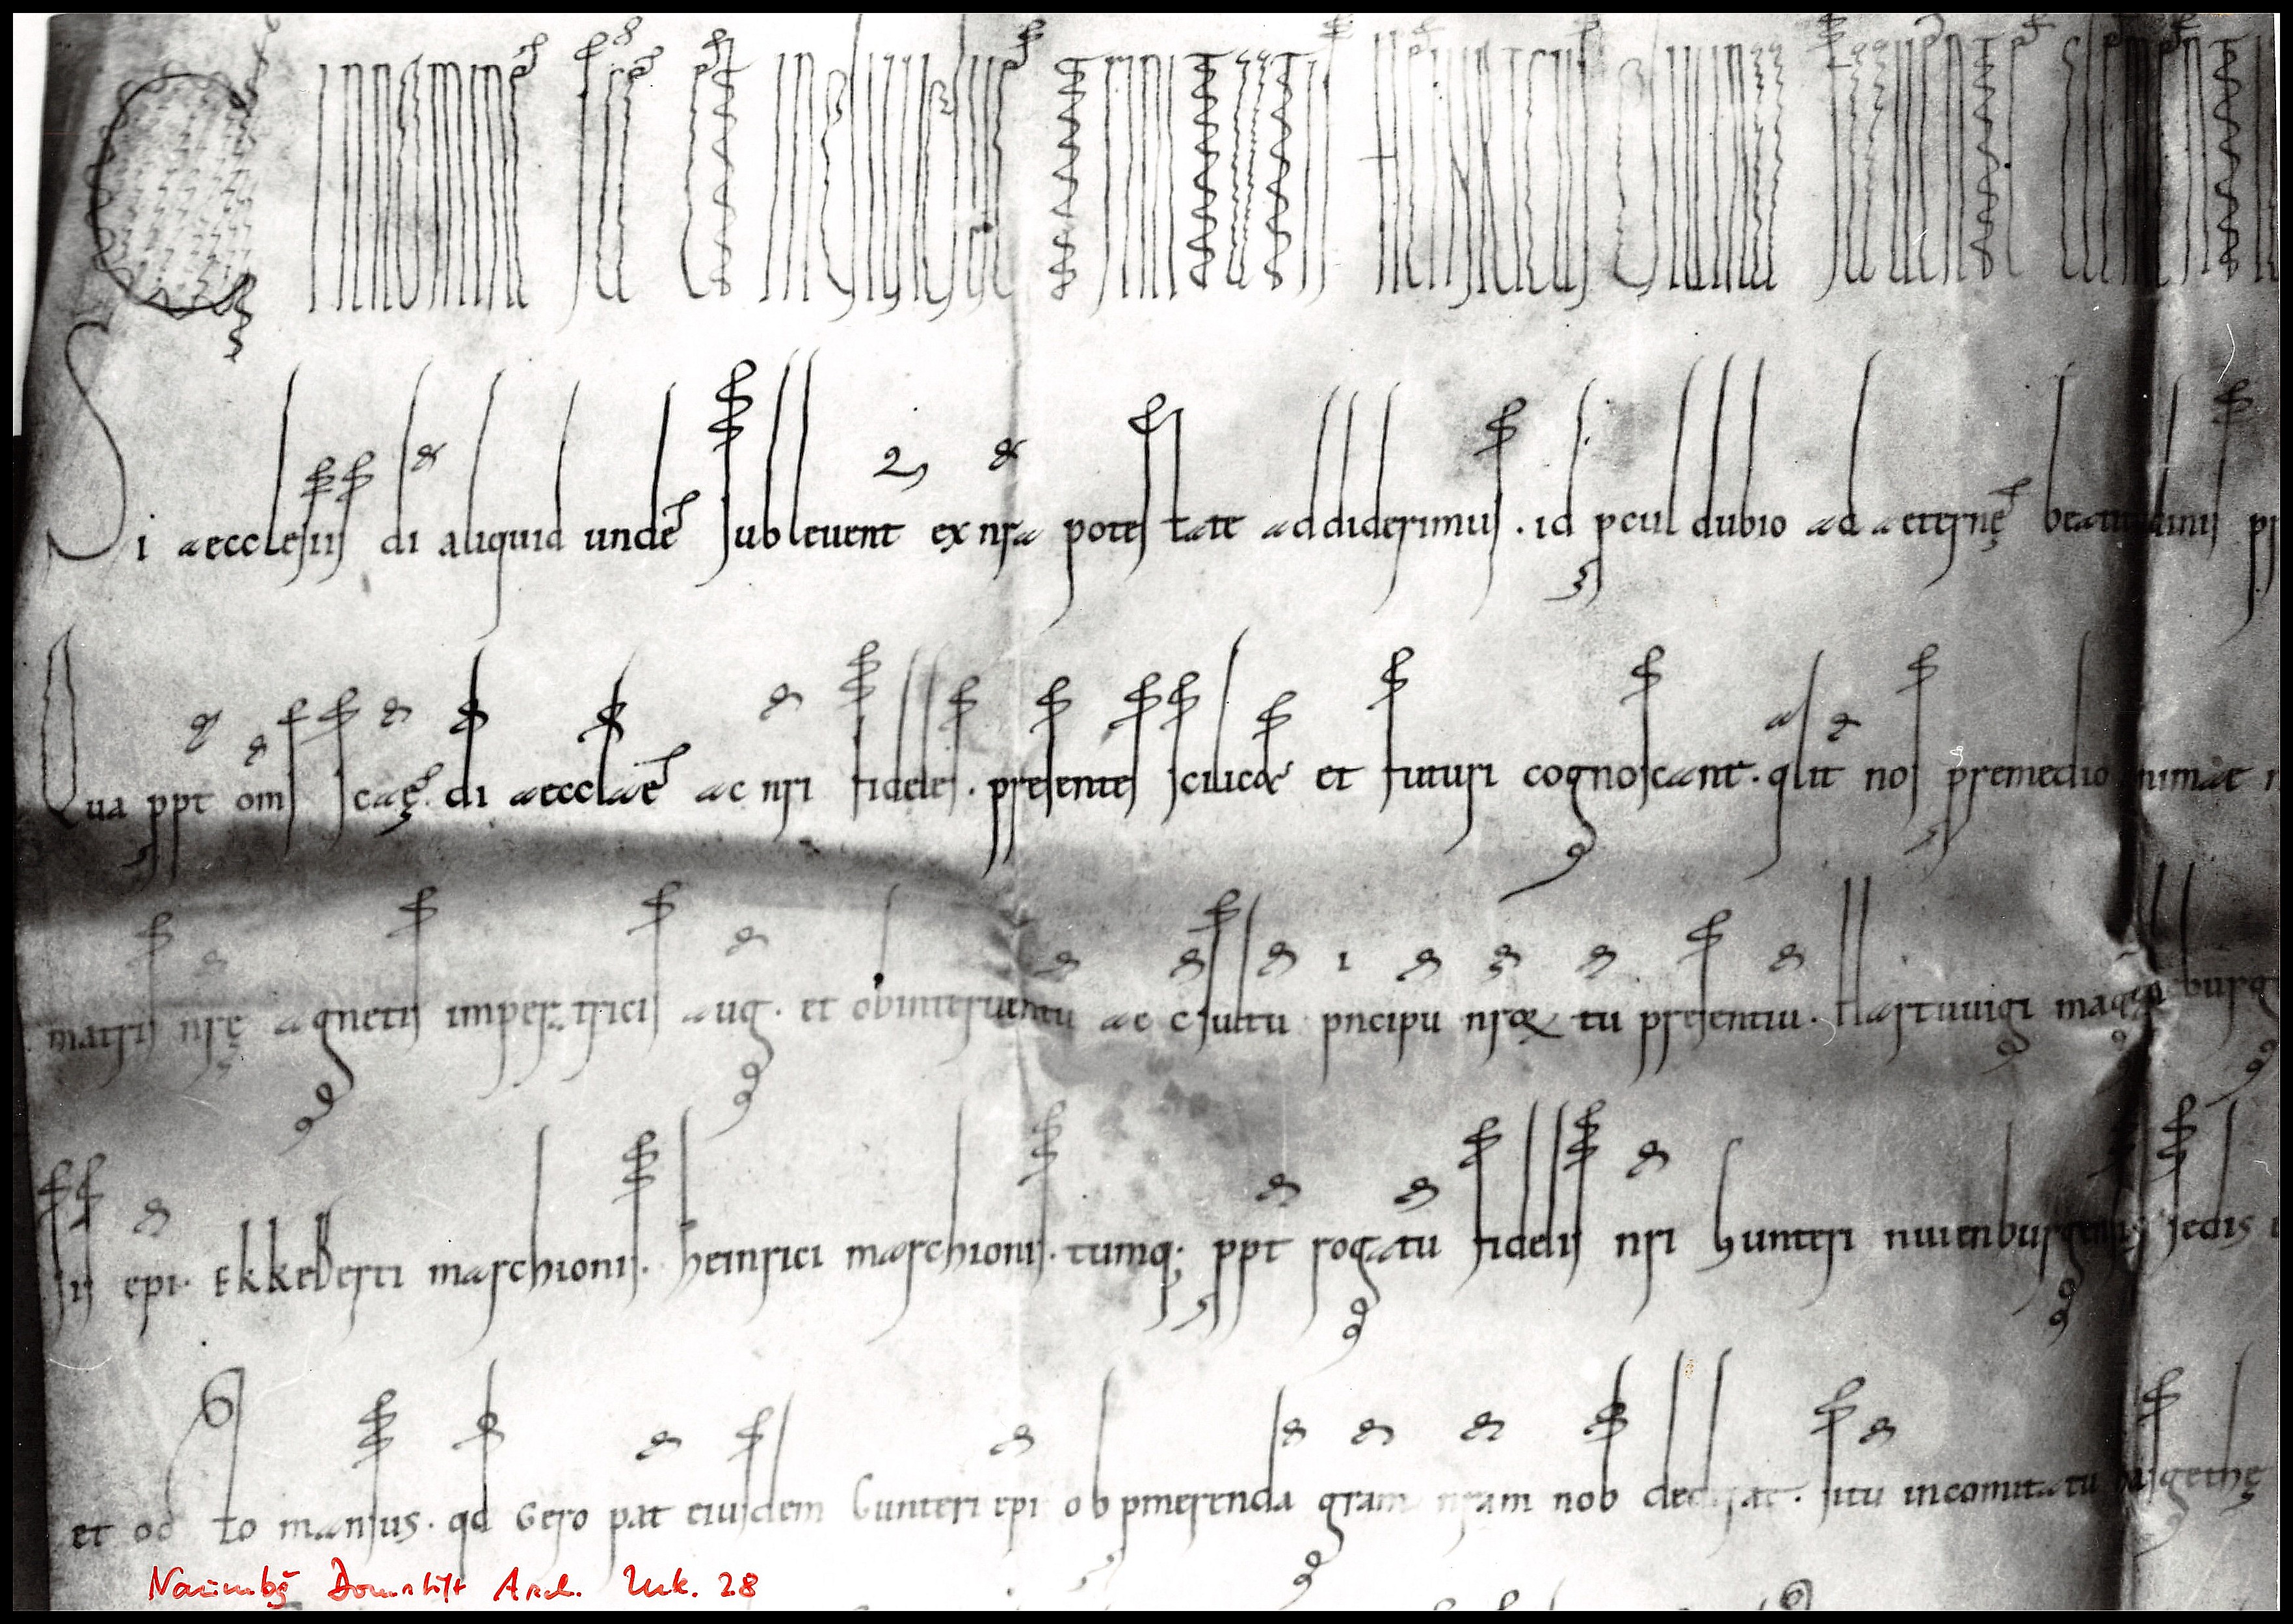 In nomine scę et individuę trinitatis Heinricus divina favente clemen
Si aecclesiis di aliquid unde sublevent ex nra potestate addiderimus . id pcul dubio ad aeternę beatitudinis
Qua ppt oms scaę di aecclae ac nri fideles . presentes scilicet et futuri cognoscant . qlit nos premedio
matris nrę agnetis imperatricis aug . et ob interventu ac csultu pncipu nror tu presentiu . Hartuuigi magedeburg
sis epi . Ekkeberti marchionis . heinrici marchionis . tumq; ppt rogatu fidelis nri Gunteri nuienburgensis sedis
et octo mansus . qd Gero pat eiusdem Gunteri epi ob pmerenda gram nram nob dederat . situ in comitatu
Naumbg Domstift Arch. Urk. 28